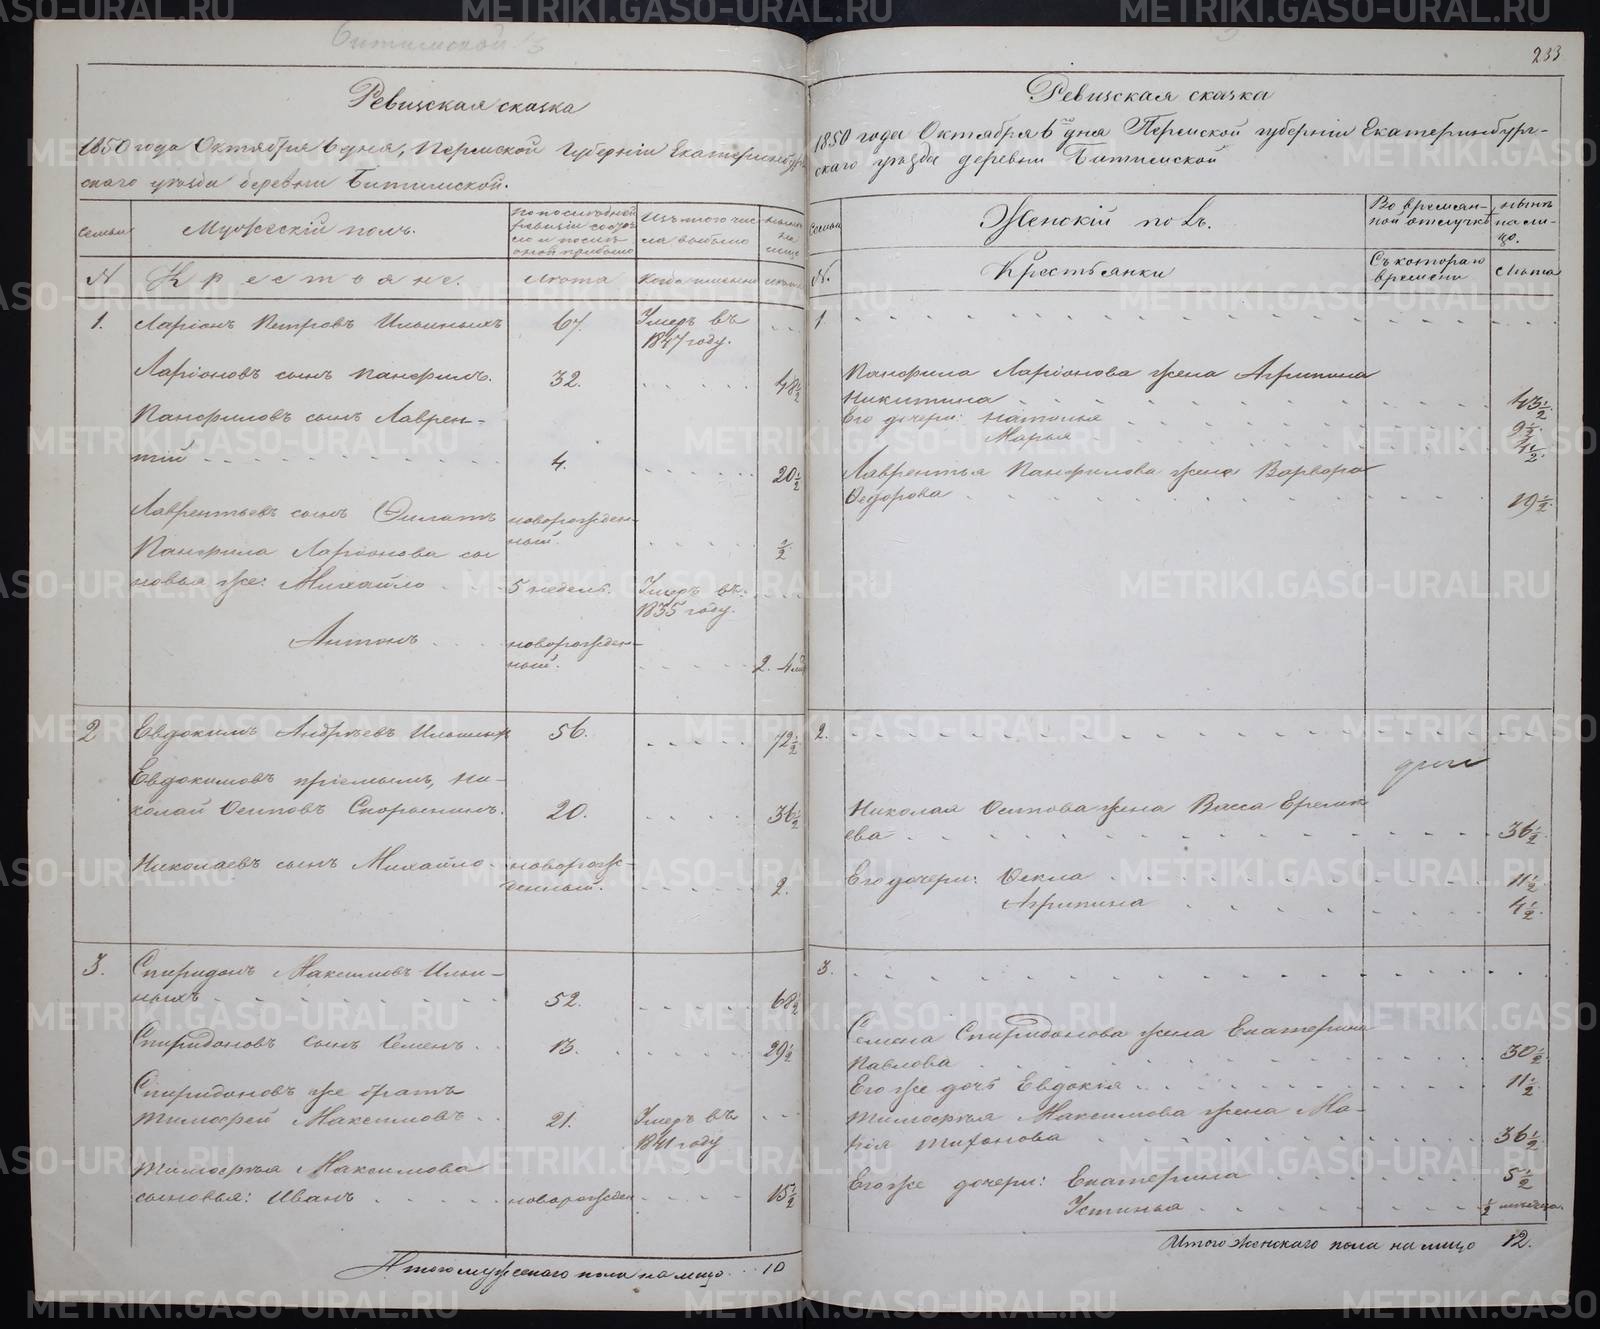 Битимской
Ревизская сказка
1850 года Октября 6 дня, Пермской Губернiи Екатеринбург-
скаго уѣзда деревни Битимской.
Семьи
Мужескiй полъ.
По последней ревизiи состояло и после оной прибыло
Изъ того числа выбыло
Ныне на лицо
N
Крестьяне.
Лета
Когда именно
лета
1. Ларiонъ Петровъ Ильиныхъ 67. Умеръ въ
1847 году.
Ларiоновъ сынъ Панфилъ. 32. 48 1/2
Панфиловъ сынъ Лаврен-
тiй 4. 20 1/2
Лаврентьевъ сынъ Филатъ новорожден-
ный. 1/2
Панфила Ларiонова сы
новья же: Михайло 5 недель. Умеръ въ
1835 году.
Антонъ новорожден-
ный. 2.
2 Евдокимъ Андреевъ Ильиныхъ 56. 72 1/2
Евдокимовъ прiемышъ, Ни-
колай Осиповъ Скорынинъ. 20. 36 1/2
Николаевъ сынъ Михайло новорож-
денный. 2.
3. Спиридонъ Максимовъ Ильи-
ныхъ 52. 68 1/2
Спиридоновъ сынъ Семенъ 13. 29 1/2
Спиридоновъ же братъ
Тимофей Максимовъ 21. Умеръ въ
1841 году
Тимофея Максимова
сыновья: Иванъ новорожден 15 1/2
Итого мужескаго пола на лицо 10
233
Ревизская сказка
1850 года Октября 6го дня Пермской губернiи Екатеринбург-
скаго уѣзда деревни Битимской
Семьи
Женскiй полъ.
Во времян-
ной отлучкѣ
ныне
на ли-
цо.
N.
Крестьянки
Съ котораго
времени
Лета
1
Панфила Ларiонова жена Агрипина
Никитина 43 1/2
Его дочери: Наталья 9 1/2
Марья 4 1/2
Лаврентья Панфилова жена Варвара
Федорова 19 1/2
2.
Николая Осипова жена Васса Еремѣ
ева 36 1/2
Его дочери: Фекла 11 1/2
Агрипина 4 1/2
3.
Семена Спиридонова жена Екатерина
Павлова 30 1/2
Его же дочь Евдокiя 11 1/2
Тимофея Максимова жена Ма-
рiя Тихонова 36 1/2
Его же дочери: Екатерина 5 1/2
Устинья 1/2 месяца.
Итого женскаго пола на лицо 12.
METRIKI.GASO-URAL.RU